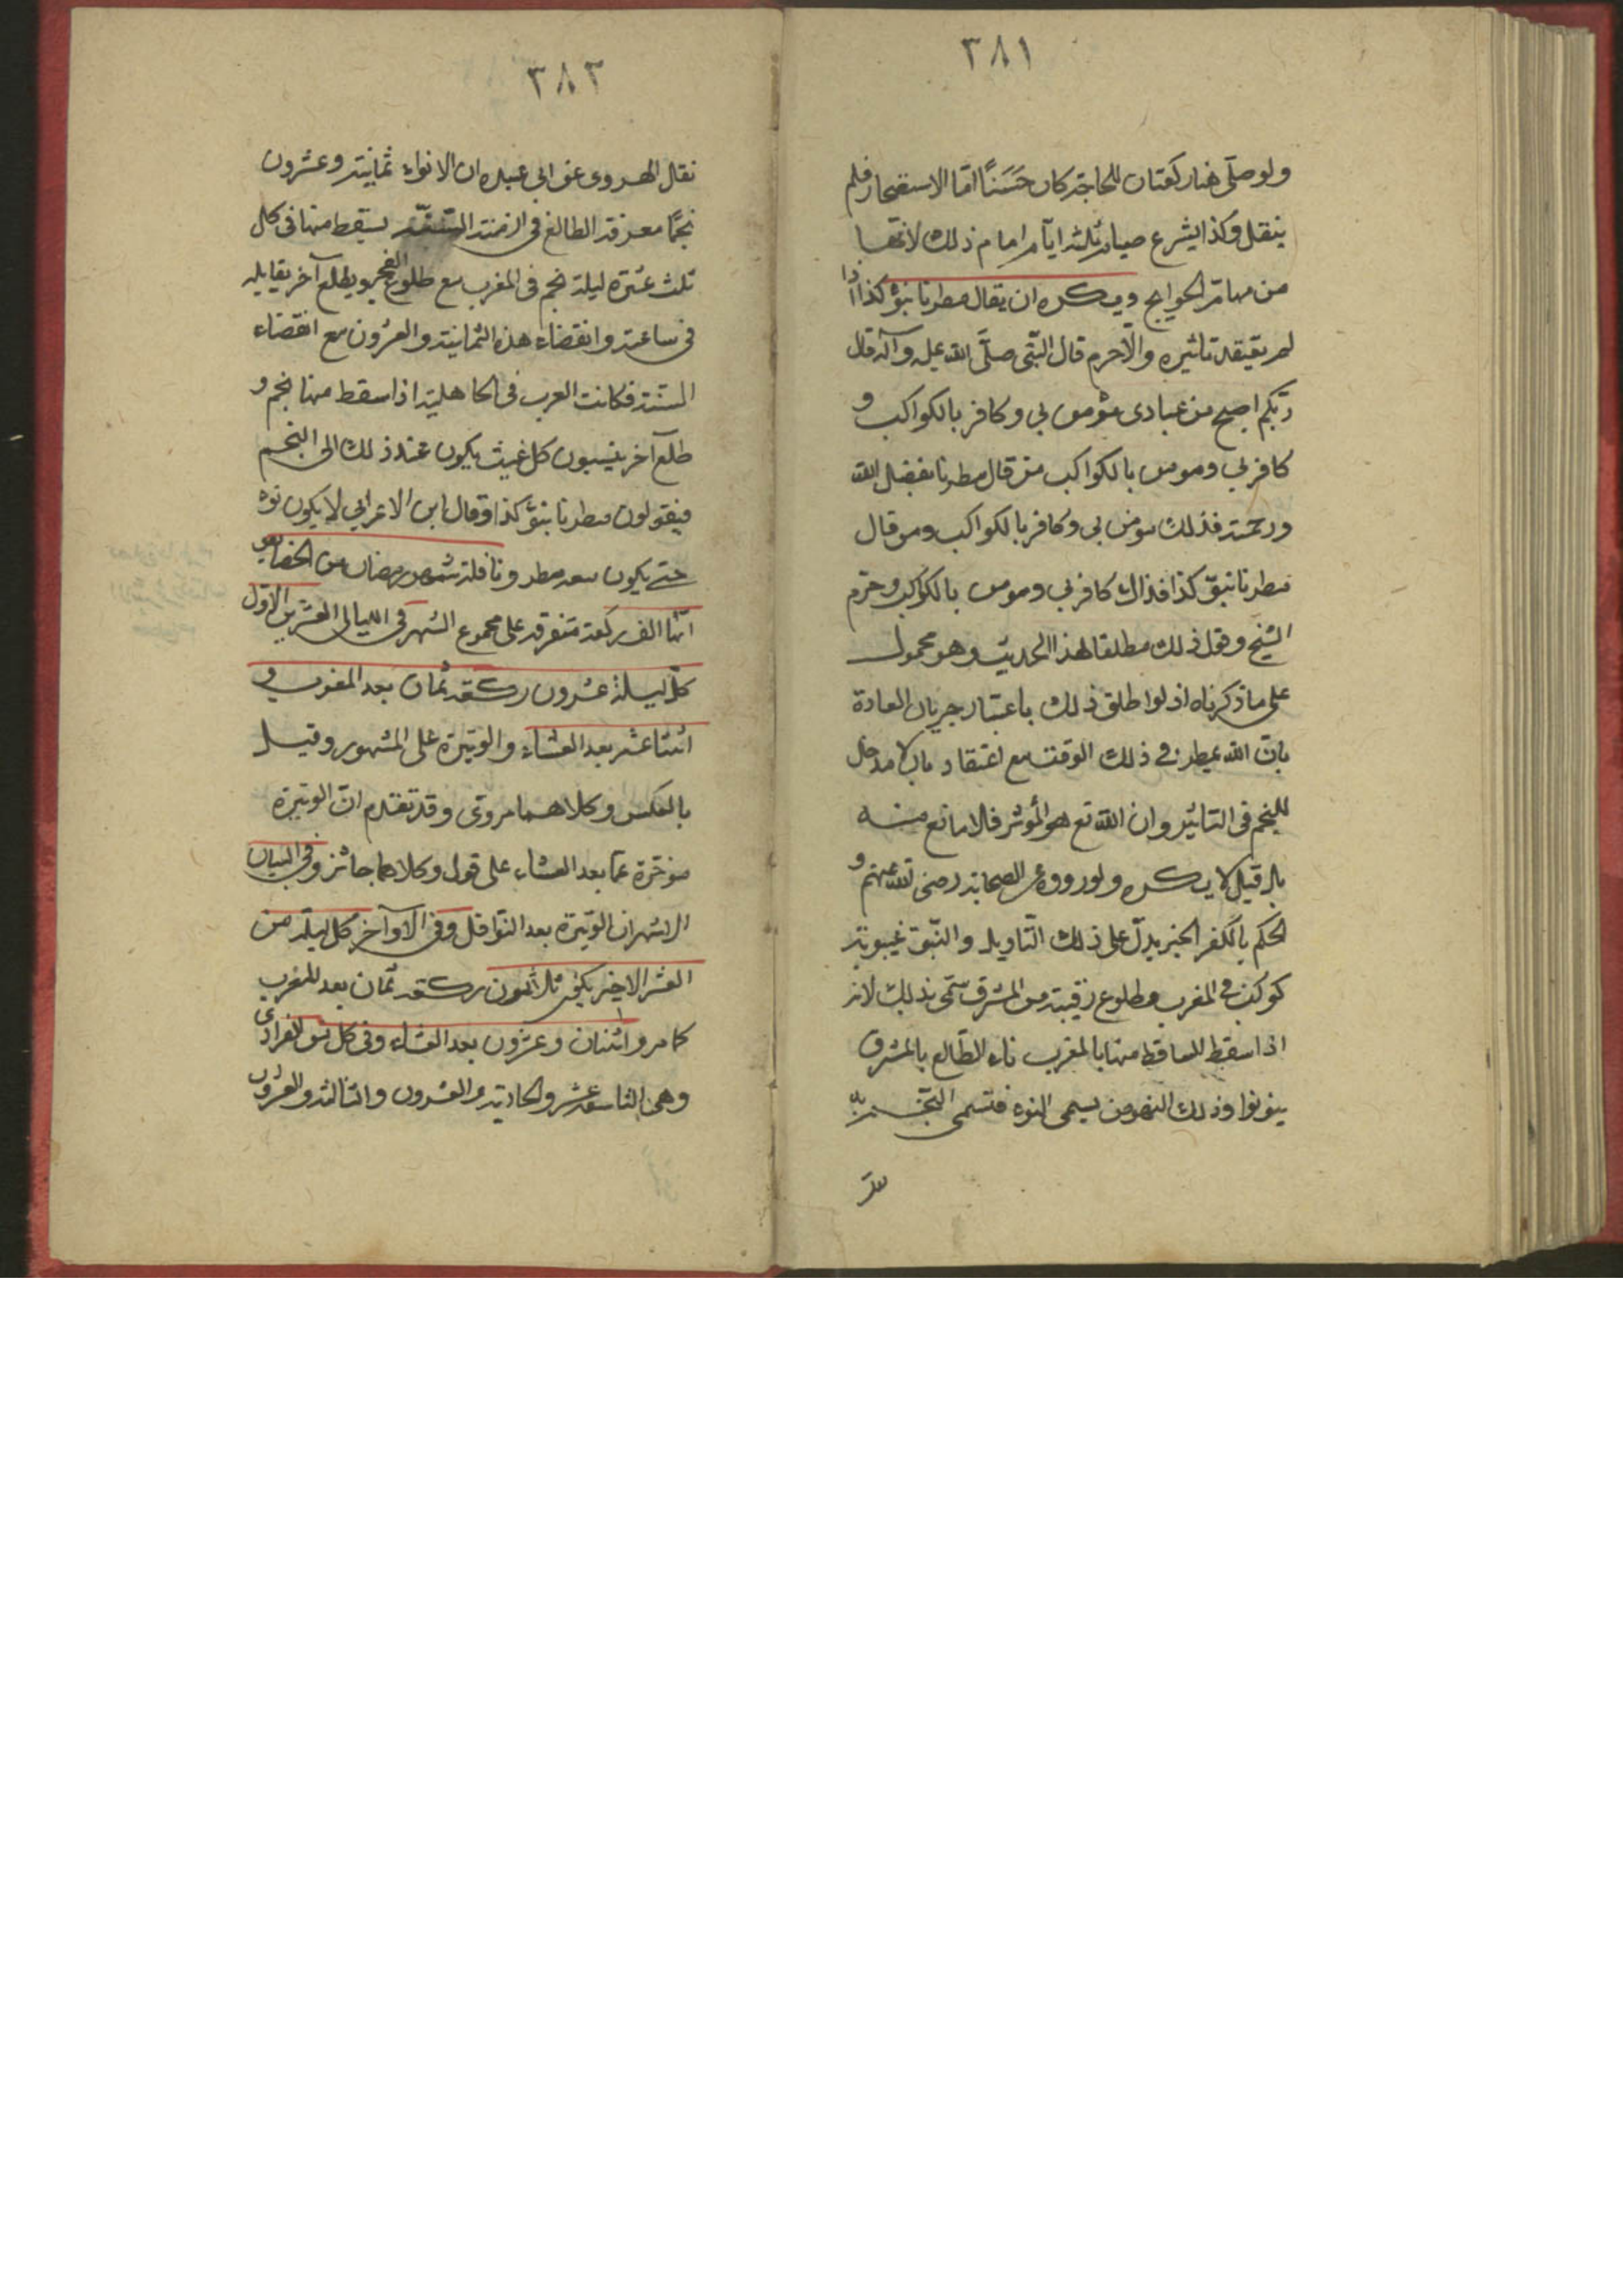 ٣٨١
ولو صلّى هنا ركعتان للحاجة كان حَسَنًا امّا الاستصحار فلم
ينقل وكذا يشرع صيام ثلثة ايّام امام ذلك لانّها
من مهامّ الحوايج ويكره ان يقال مطرنا بنوّ كذا اذا
لم يعتقد تاثيره والّا حرم قال النبّى صلّى الله عليه وآله قال
ربّكم اصبح من عبادى مؤمن بي وكافر بالكواكب و
كافر بي ومومن بالكواكب من قال مطرنا بفضل الله
ورحمته فذلك مومن بي وكافر بالكواكب ومن قال
مطرنا بنوّ كذا فذاك كافر بي ومومن بالكواكب وحرّم
الشيخ وقول ذلك مطلقا لهذا الحديث وهو محمول
على ما ذكرناه اذ لو اطلق ذلك باعتبار جريان العادة
بانّ الله يمطر في ذلك الوقت مع اعتقاد بان لا مدخل
للنجم فى التاثير وان الله تع هو المؤثر فلا مانع منه
بل قيل لا يكره ولوروده عن الصحابة رضى الله عنهم و
الحكم بالكفر الخبر يدلّ على ذلك التاويل والنّوّ غيبوبة
كوكب في المغرب وطلوع رقيبه من المشرق سمّى بذلك لانه
اذا سقط الساقط منها بالمغرب ناء الطّالع بالمشرق
ينو نوا وذلك النهوض يسمى النوء فتسمى النّجم به
٣٨٣
نقل الهروى عن ابي عبيده ان الانواء ثمانية وعشرون
نجمًا معرفة الطالع فى ازمنة السّنة يسقط منها فى كل
ثلث عشرة ليلة نجم فى المغرب مع طلوع الفجر ويطلع آخر يقابله
فى ساعته وانقضاء هذه الثمانية والعشرون مع انقضاء
السّنة فكانت العرب فى الجاهلية اذا سقط منها نجم و
طلع آخر ينسبون كل غيث يكون عند ذلك الى النجم
فيقولون مطرنا بنوّ كذا وقال ابن الاعرابي لا يكون نوء
حتى يكون معه مطر ونافلة شهر رمضان من الخصايص
انّها الف ركعة متفرقة على مجموع الشهر فى الليالى العشرين الاول
كلّ ليلة عشرون ركعة ثمان بعد المغرب و
اثنتا عشر بعد العشاء والوتيرة على المشهور وقيل
بالعكس وكلاهما مروى وقد تقدم انّ الوتيرة
موخرة عمّا بعد العشاء على قول وكلاهما جائز وفي البيان
الاشهر ان الوتيرة بعد النّوافل وفى الاوآخر كل ليلة من
العشر الاخير يكفى ثلاثون ركعة ثمان بعد المغرب
كما مر واثنان وعشرون بعد العشاء وفى كل من الفرادى
وهى التاسعة عشر والحادية والعشرون والثالثة والعشرون